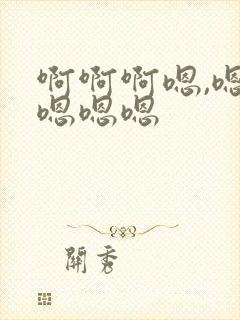 啊啊啊嗯,嗯
嗯嗯嗯
關秀